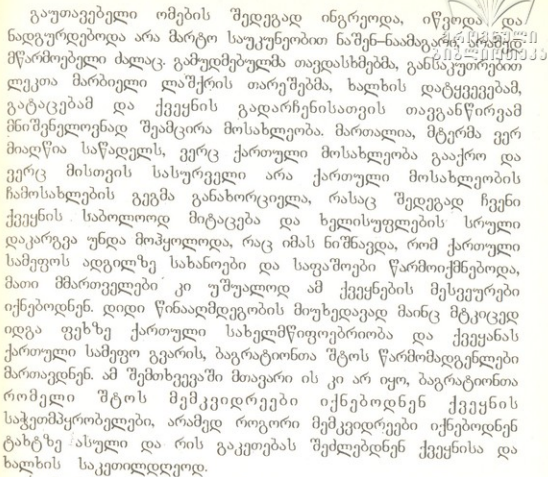 გაუთავებელი ომების შედეგად ინგრეოდა, იწვოდა და
ნადგურდებოდა არა მარტო საუკუნეობით ნაშენ–ნაამაგარი, არამედ
მწარმოებელი ძალაც. გამუდმებულმა თავდასხმებმა, განსაკუთრებით
ლეკთა მარბიელი ლაშქრის თარეშებმა, ხალხის დატყვევებამ,
გატაცებამ და ქვეყნის გადარჩენისათვის თავგანწირვამ
მნიშვნელოვნად შეამცირა მოსახლეობა. მართალია, მტერმა ვერ
მიაღწია საწადელს, ვერც ქართული მოსახლეობა გააქრო და
ვერც მისთვის სასურველი არა ქართული მოსახლეობის
ჩამოსახლების გეგმა განახორციელა, რასაც შედეგად ჩვენი
ქვეყნის საბოლოოდ მიტაცება და ხელისუფლების სრული
დაკარგვა უნდა მოჰყოლოდა, რაც იმას ნიშნავდა, რომ ქართული
სამეფოს ადგილზე სახანოები და საფაშოები წარმოიქმნებოდა,
მათი მმართველები კი უშუალოდ ამ ქვეყნების მესვეურები
იქნებოდნენ. დიდი წინააღმდეგობის მიუხედავად მაინც მტკიცედ
იდგა ფეხზე ქართული სახელმწიფოებრიობა და ქვეყანას
ქართული სამეფო გვარის, ბაგრატიონთა შტოს წარმომადგენლები
მართავდნენ. ამ შემთხვევაში მთავარი ის კი არ იყო, ბაგრატიონთა
რომელი შტოს მემკვიდრეები იქნებოდნენ ქვეყნის
საჭეთმპყრობელები, არამედ როგორი მემკვიდრეები იქნებოდნენ
ტახტზე ასული და რის გაკეთებას შეძლებდნენ ქვეყნისა და
ხალხის საკეთილდღეოდ.